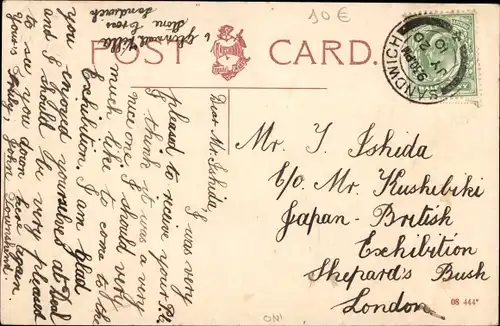 10 €
1, Clonmel Villa
Sandwich
POST CARD.
SANDWICH
9.30 PM
JY 20
10
Dear Mr Ishida, I was very
pleased to receive your P.C.
I think it was a very
nice one I should very
much like to come to the
Exhibition. I am glad
you enjoyed yourselves at Deal
and I should be very pleased
to see you down here again
Yours truly, John Townshend.
Mr. T. Ishida
c/o Mr. Kushibiki
Japan-British
Exhibition
Sheperd's Bush
London
08 444*